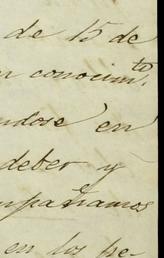 de 15 de
n conocim.to
ndose en
deber y
mpañamos
en los pe-